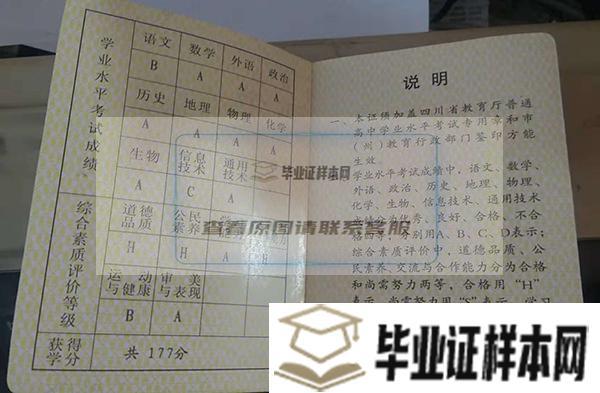 学业水平考试成绩
语文 数学 外语 政治
B A A A
历史 地理 物理 化学
A A A A
生物 信息技术 通用技术
A C A
综合素质评价等级
道德品质 公民素养
H H A
运动与健康 审美与表现
B A
获得学分 共 177分
说 明
一、本证须加盖四川省教育厅普通
高中学业水平考试专用章和市
(州)教育行政部门签印方能
生效。
学业水平考试成绩中，语文、数学、
外语、政治、历史、地理、物理、
化学、生物、信息技术、通用技术
成绩分为优秀、良好、合格、不合
格四等，分别用A、B、C、D表示；
综合素质评价中，道德品质、公
民素养、交流与合作能力分为合格
和尚需努力两等，合格用“H”
表示，尚需努力用“S”表示，学习
毕业证样本网
查看原图请联系客服
毕业证样本网